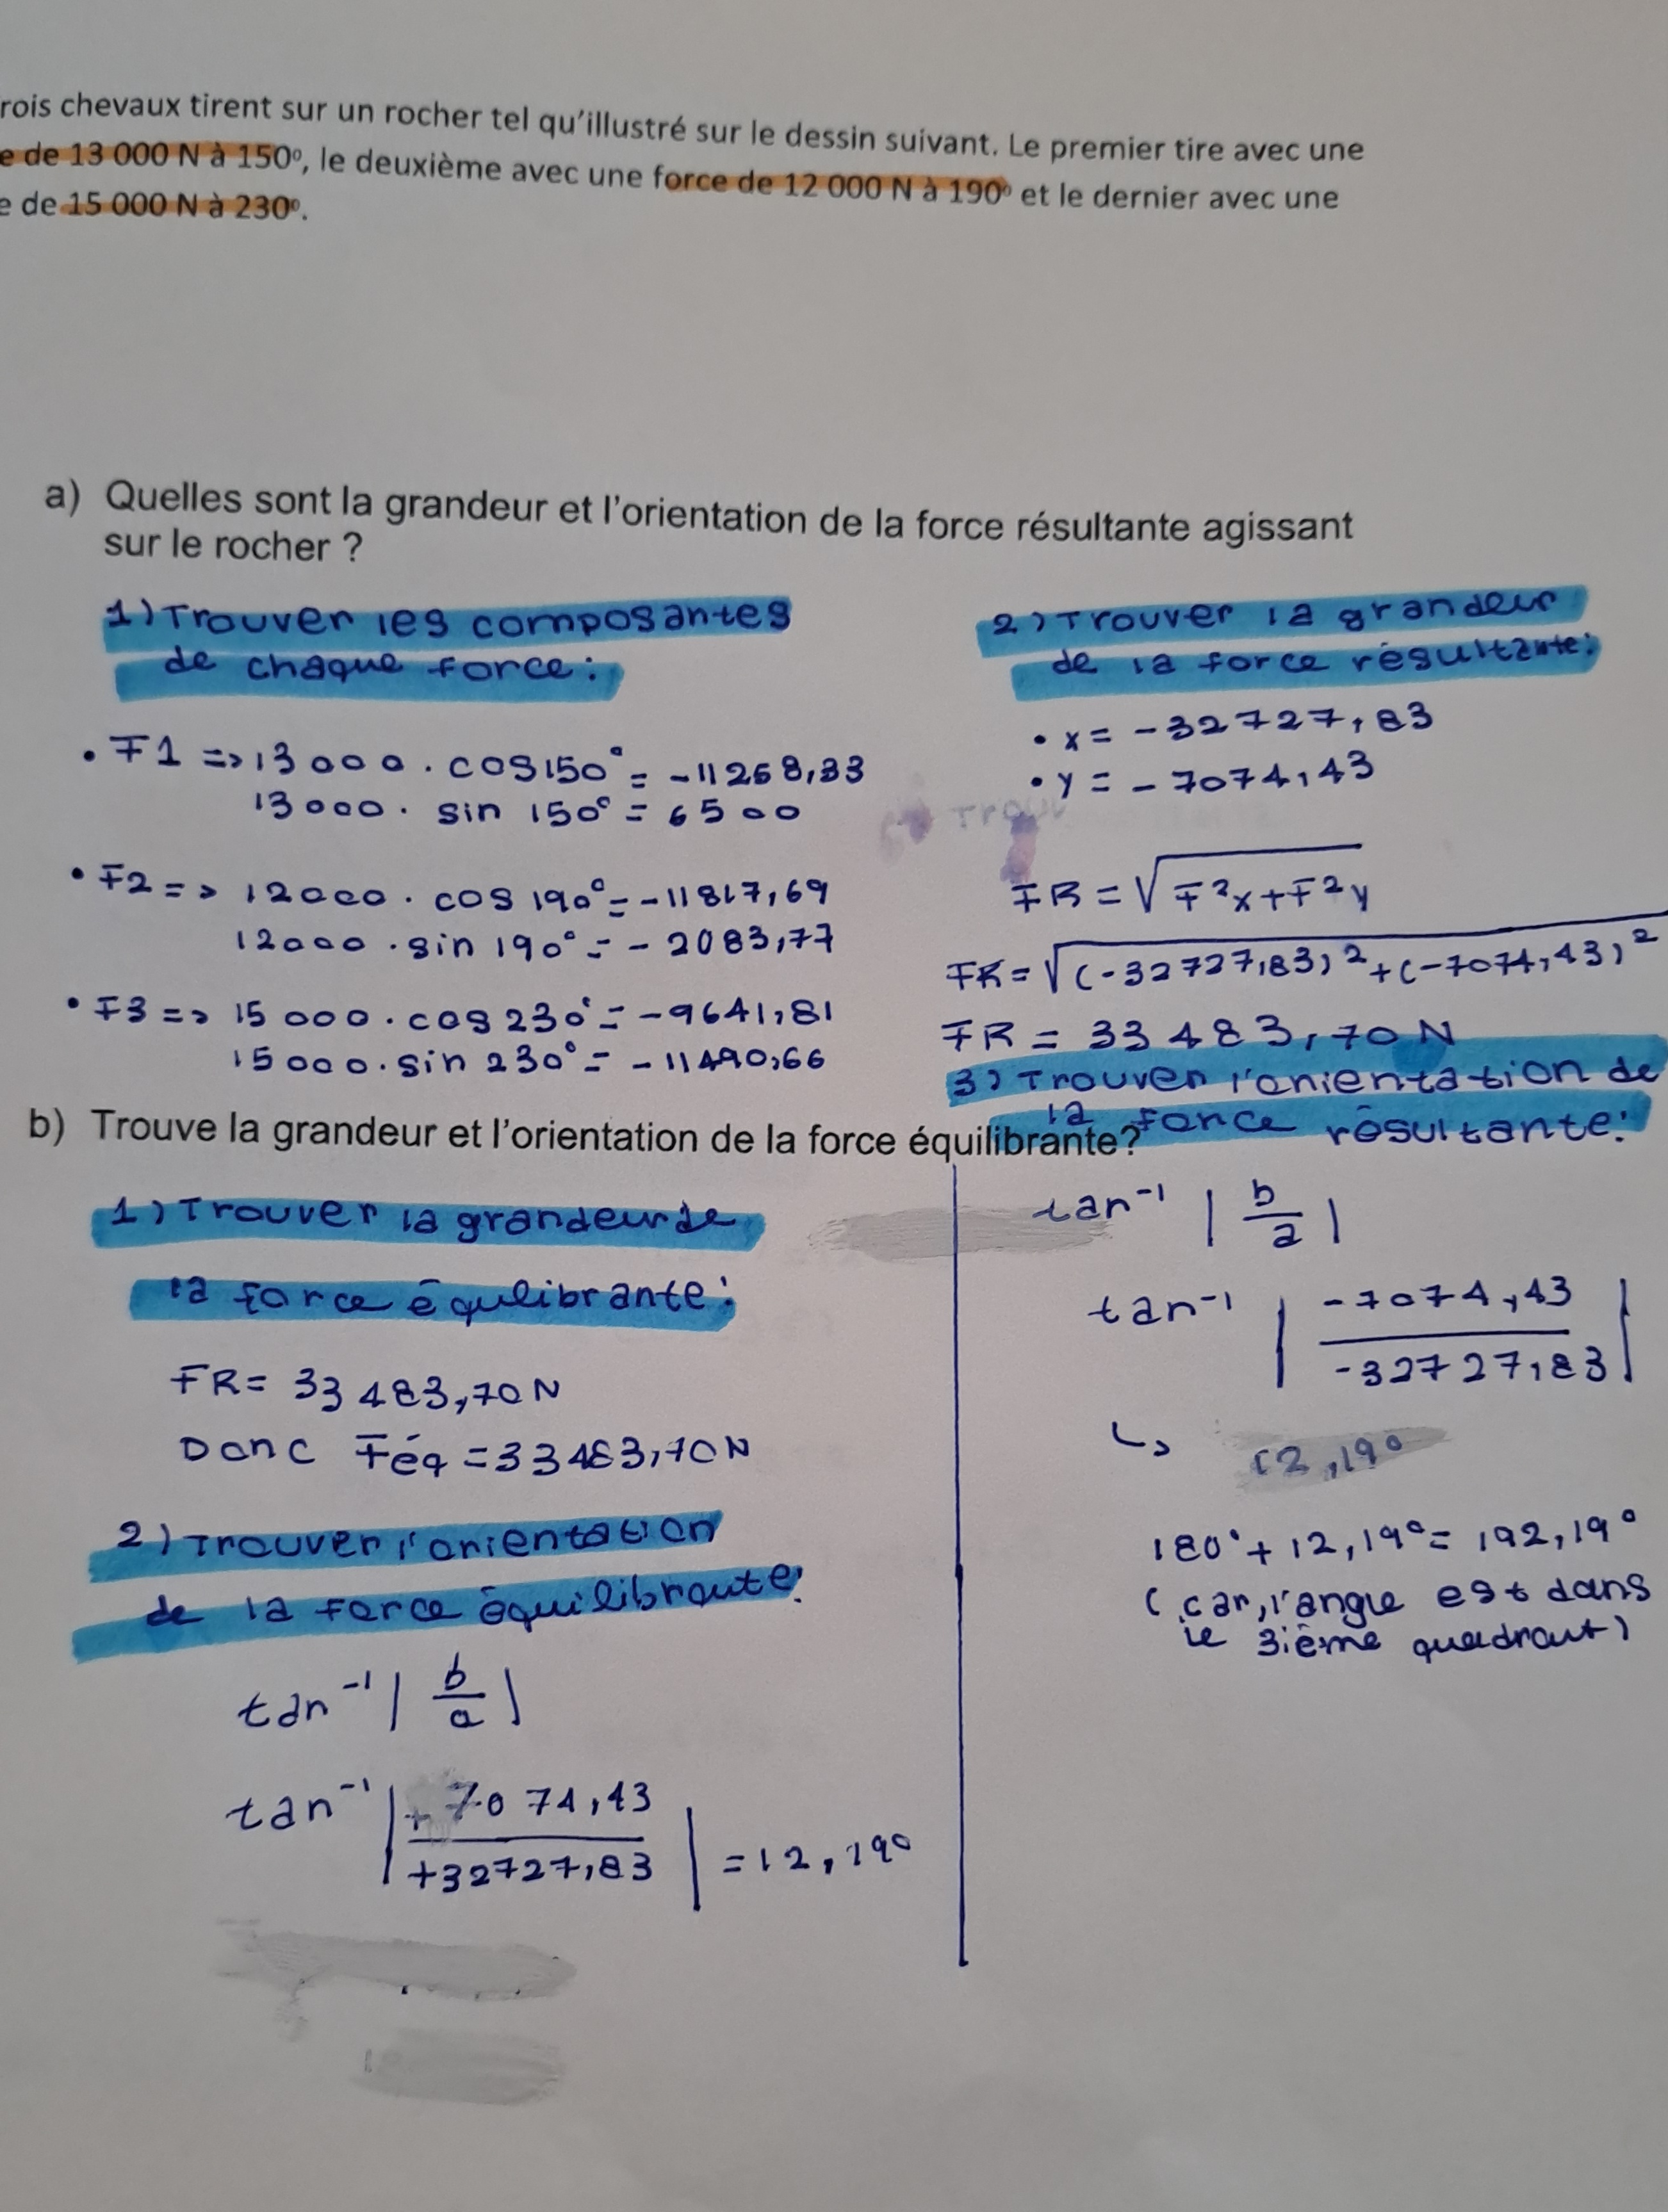 rois chevaux tirent sur un rocher tel qu'illustré sur le dessin suivant. Le premier tire avec une
e de 13 000 N à 150º, le deuxième avec une force de 12 000 N à 190º et le dernier avec une
e de 15 000 N à 230º.
a) Quelles sont la grandeur et l'orientation de la force résultante agissant
sur le rocher ?
1) Trouver les composantes
de chaque force :
• F1 => 13 000 . cos 150° = -11258,33
13000 . sin 150° = 6500
• F2 => 12000 . cos 190° = -11817,69
12000 . sin 190° = - 2083,77
• F3 => 15 000 . cos 230° = -9641,81
15000 . sin 230° = -11490,66
2) Trouver la grandeur
de la force résultante:
• x = -32727,83
• y = - 7074,43
Trouv
FR = √F²x + F²y
FR = √(-32727,83)² + (-7074,43)²
FR = 33 483,70 N
3) Trouver l'orientation de
la force résultante:
tan⁻¹ | b/a |
tan⁻¹ | -7074,43 / -32727,83 |
↳ 12,19°
180° + 12,19° = 192,19°
(car, l'angle est dans
le 3ième quadrant)
b) Trouve la grandeur et l'orientation de la force équilibrante?
1) Trouver la grandeur de
la force équlibrante:
FR = 33 483,70 N
Donc Féq = 33483,70 N
2) Trouver l'orientation
de la force équilibrante:
tan⁻¹ | b/a |
tan⁻¹ | +7074,43 / +32727,83 | = 12,19°